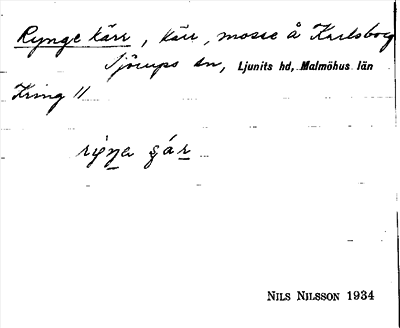 Rynge kärr, kärr, mosse å Karlsborg
Sjörups sn, Ljunits hd, Malmöhus län
Kring 11
NILS NILSSON 1934